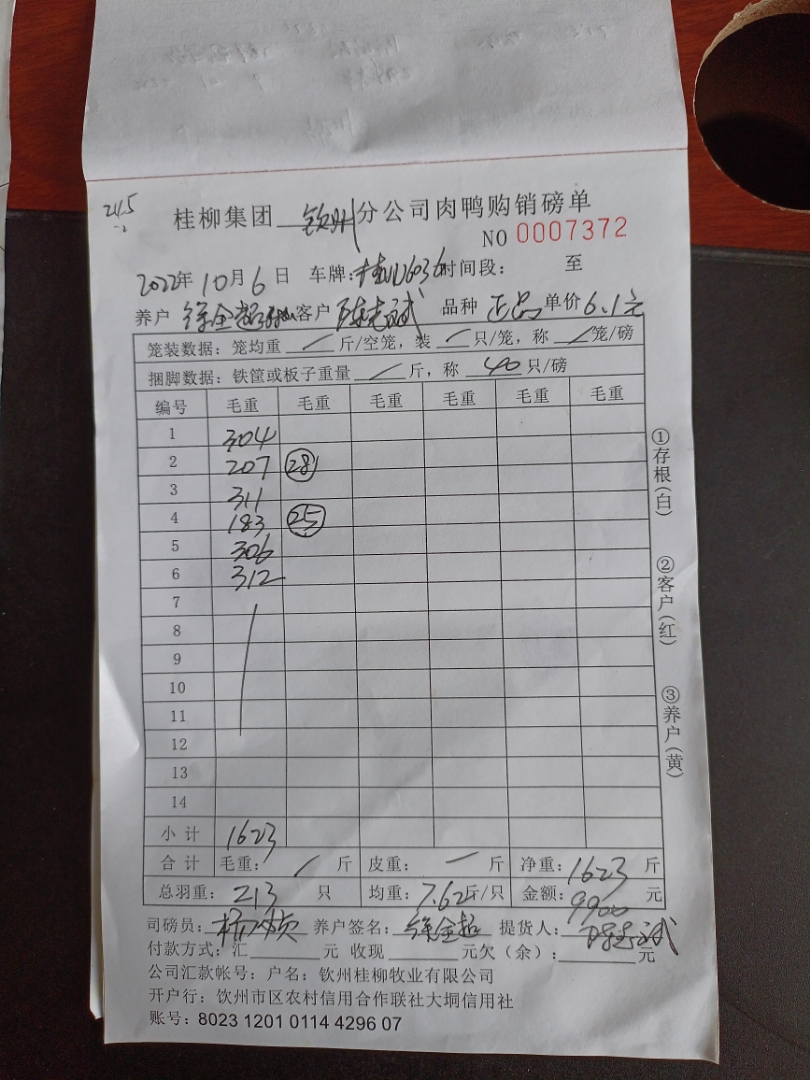 215
-2
桂柳集团 钦州 分公司肉鸭购销磅单
NO 0007372
2022年10月6日 车牌: 桂 D6036 时间段: 至
养户 徐全超 客户 陈志斌 品种 正品 单价 6.1元
笼装数据: 笼均重 / 斤/空笼, 装 / 只/笼, 称 / 笼/磅
捆脚数据: 铁筐或板子重量 / 斤, 称 40 只/磅
编号 毛重 毛重 毛重 毛重 毛重 毛重
1 304
2 207 (28)
3 311
4 183 (25)
5 306
6 312
7
8
9
10
11
12
13
14
小计 1623
合计 毛重: / 斤 皮重: — 斤 净重: 1623 斤
总羽重: 213 只 均重: 7.62斤/只 金额: 9900 元
司磅员: 养户签名: 徐全超 提货人: 陈志斌
付款方式: 汇 元 收现 元欠(余): 元
公司汇款帐号: 户名: 钦州桂柳牧业有限公司
开户行: 钦州市区农村信用合作联社大垌信用社
账号: 8023 1201 0114 4296 07
①存根(白)
②客户(红)
③养户(黄)